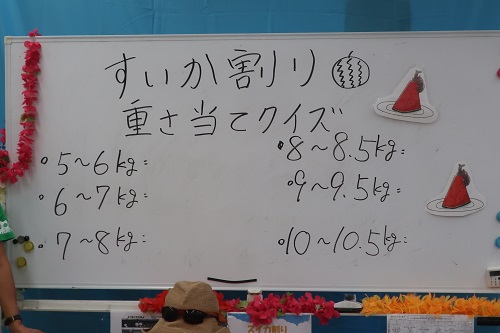 すいか割り
重さ当てクイズ
・5~6kg:
・6~7kg:
・7~8kg:
・8~8.5kg:
・9~9.5kg:
・10~10.5kg:
スイカ割り